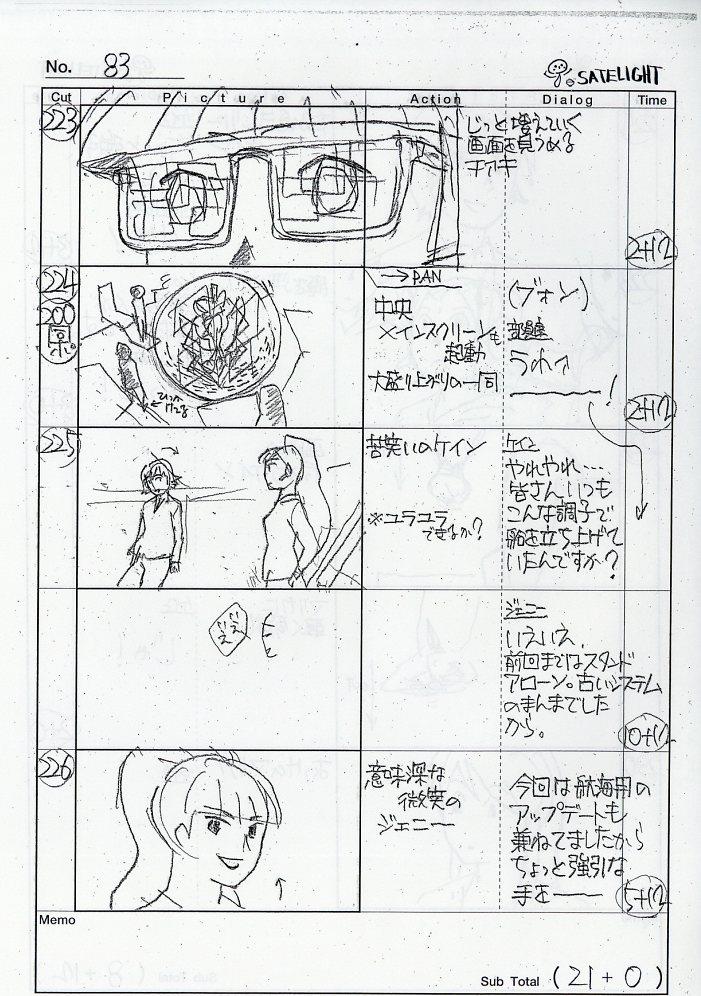 No. 83
SATELIGHT
Cut Picture Action Dialog Time
223
じっと増えていく
画面を見つめる
チアキ
2+12
224
200
景
→PAN
中央
メインスクリーンも
起動
大盛り上がりの一同
(ヴォン)
うわっ
!
2+12
225
苦笑いのケイン
※ユラユラ
できるか?
ケイン
やれやれ…
皆さんいつも
こんな調子で
船を立ち上げて
いたんですか?
いえ
いえ
ジェニー
いえいえ、
前回まではスタンド
アローン。古いシステム
のまんまでした
から。
10+12
226
意味深な
微笑の
ジェニー
今回は航海用の
アップデートも
兼ねてましたから
ちょっと強引な
手を——
5+12
Memo
Sub Total (21+0)